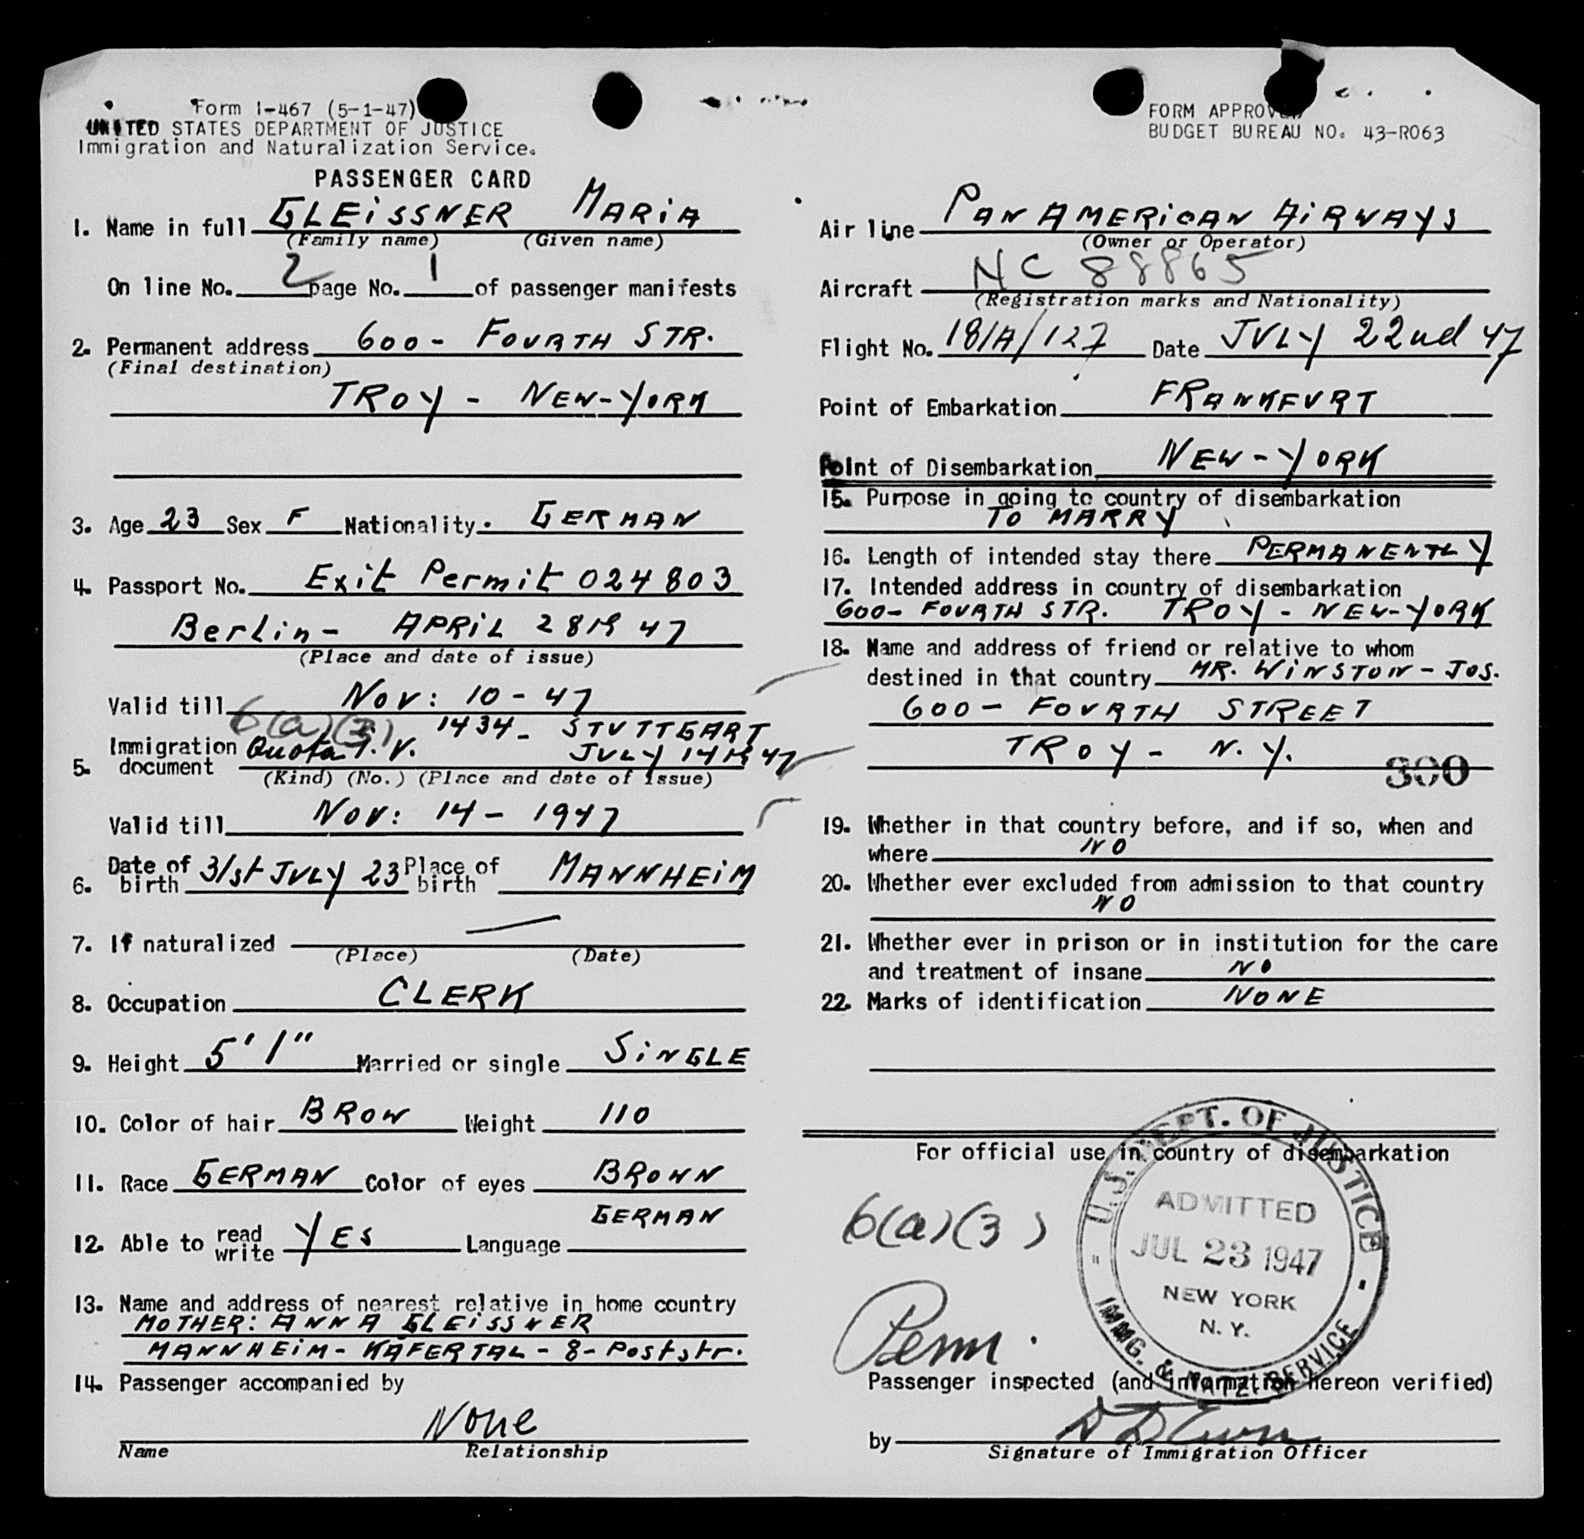 Form I-467 (5-1-47)
UNITED STATES DEPARTMENT OF JUSTICE
Immigration and Naturalization Service.
PASSENGER CARD
1. Name in full GLEiSSNER MARiA
(Family name) (Given name)
On line No. 2 page No. 1 of passenger manifests
2. Permanent address 600 - FOURTH STR.
(Final destination)
TROY - NEW-YORK
3. Age 23 Sex F Nationality. GERMAN
4. Passport No. Exit Permit 024803
Berlin - APRIL 28th 47
(Place and date of issue)
Valid till Nov: 10 - 47
6(a)(3) 1434 - STUTTGART
5. Immigration document Quota I.V. JULY 14th 47
(Kind) (No.) (Place and date of issue)
Valid till Nov: 14 - 1947
6. Date of birth 31st JULY 23 Place of birth MANNHEiM
7. If naturalized —
(Place) (Date)
8. Occupation CLERK
9. Height 5'1" Married or single SiNGLE
10. Color of hair BROW Weight 110
11. Race GERMAN Color of eyes BROWN
12. Able to read write YES Language GERMAN
13. Name and address of nearest relative in home country
MOTHER: ANNA GLEiSSNER
MANNHEiM - KÄFERTAL - 8 - Poststr.
14. Passenger accompanied by
None
Name Relationship
FORM APPROVED
BUDGET BUREAU NO. 43-R063
Air line PAN AMERiCAN AiRWAYS
(Owner or Operator)
Aircraft NC 88865
(Registration marks and Nationality)
Flight No. 181A/127 Date JULY 22nd 47
Point of Embarkation FRANKFURT
Point of Disembarkation NEW-YORK
15. Purpose in going to country of disembarkation
TO MARRY
16. Length of intended stay there PERMANENTLY
17. Intended address in country of disembarkation
600 - FOURTH STR. TROY - NEW-YORK
18. Name and address of friend or relative to whom
destined in that country MR. WiNSTON - JOS.
600 - FOURTH STREET
TROY - N.Y.
300
19. Whether in that country before, and if so, when and
where NO
20. Whether ever excluded from admission to that country
NO
21. Whether ever in prison or in institution for the care
and treatment of insane NO
22. Marks of identification NONE
For official use in country of disembarkation
6(a)(3)
Perm.
U.S. DEPT. OF JUSTICE
ADMITTED
JUL 23 1947
NEW YORK
N.Y.
IMMG. & NATZ. SERVICE
Passenger inspected (and information hereon verified)
by
Signature of Immigration Officer